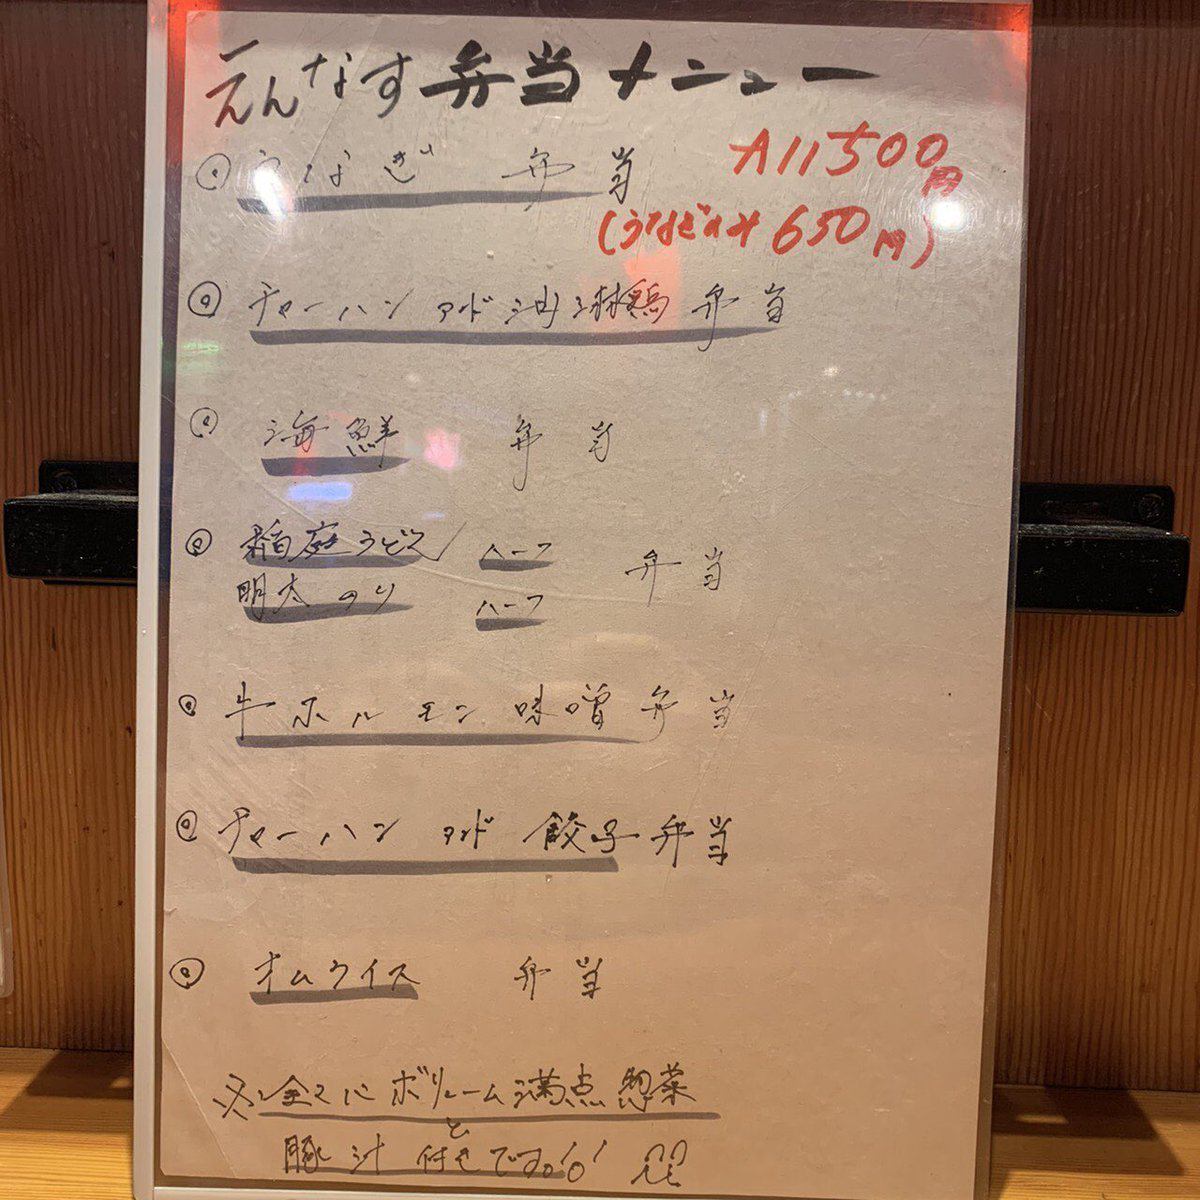 えんなす弁当メニュー
All 500円
(うなぎのみ 650円)
うなぎ 弁当
チャーハン アンド 油淋鶏 弁当
海鮮 弁当
稲庭うどん ハーフ
明太のり ハーフ 弁当
牛ホルモン味噌弁当
チャーハン アンド 餃子弁当
オムライス 弁当
※全てにボリューム満点惣菜
と
豚汁 付きです!!